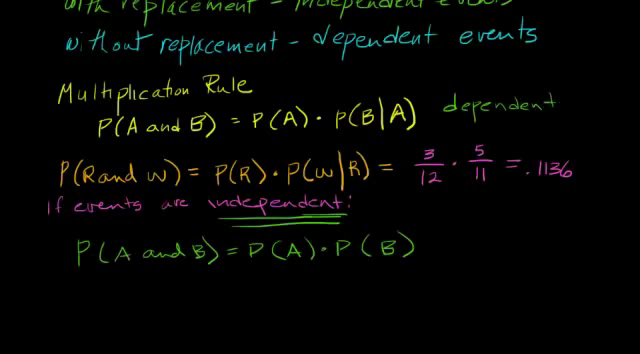 with replacement - independent events
without replacement - dependent events
Multiplication Rule
P(A and B) = P(A) · P(B|A) dependent
P(R and W) = P(R) · P(W|R) = 3/12 · 5/11 = .1136
If events are independent:
P(A and B) = P(A) · P(B)